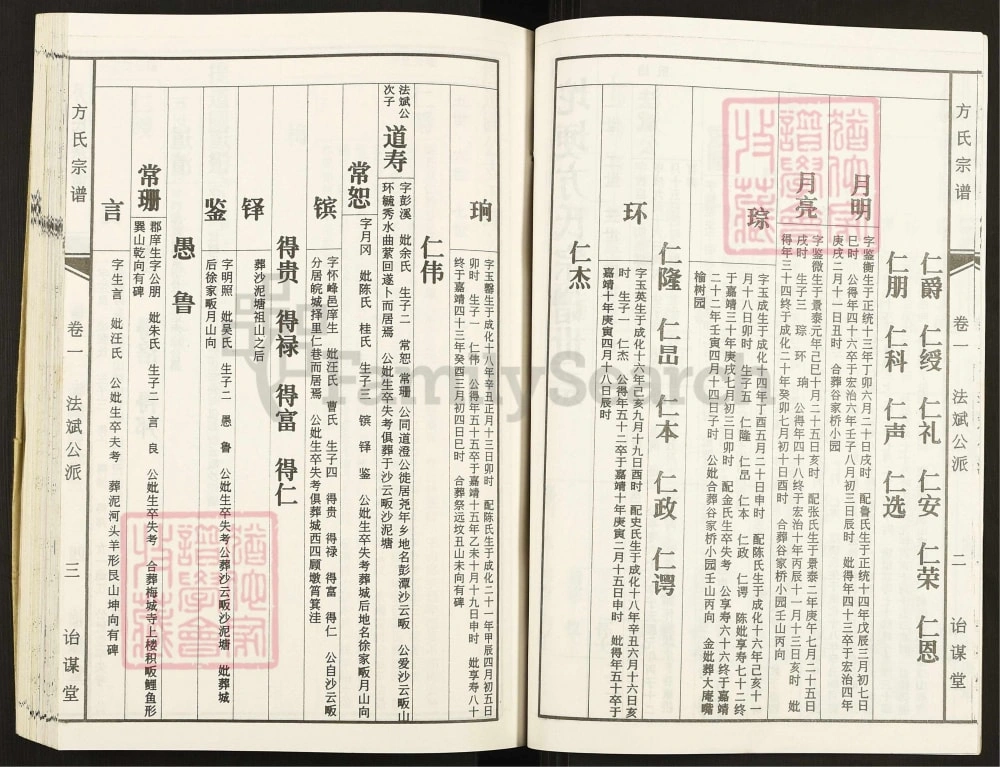 方氏宗谱
卷一
法斌公派
二
诒谋堂
仁爵 仁绶 仁礼 仁安 仁荣 仁恩
仁朋 仁科 仁声 仁选
月明
字鉴衡生于正统十三年丁卯六月二十日戌时 配鲁氏生于正统十四年戊辰三月初七日
巳时 公得年四十六卒于宏治六年壬子八月初三日辰时 妣得年四十三卒于宏治四年
庚戌二月十一日丑时 合葬谷家桥小园
月亮
字鉴微生于景泰元年己巳十月二十五日亥时 配张氏生于景泰二年庚午七月二十五日
戌时 生子三 琮 环 珦 公得年四十八终于宏治十年丙辰十一月十三日亥时 妣
得年三十四终于成化二十年癸卯七月初十日酉时 合葬谷家桥小园壬山丙向
琮
字玉成生于成化十四年丁酉五月二十日申时 配陈氏生于成化十六年己亥十一
月十八日卯时 生子五 仁隆 仁昷 仁本 仁政 仁谔 陈妣享寿七十二终
于嘉靖三十年庚戌七月初三日卯时 配金氏生卒失考 公享寿六十六终于嘉靖
二十二年壬寅四月十四日子时 公妣合葬谷家桥小园壬山丙向 金妣葬大庵嘴
榆树园
仁隆 仁昷 仁本 仁政 仁谔
环
字玉英生于成化十六年己亥九月十九日酉时 配史氏生于成化十八年辛丑六月十六日亥
时 生子一 仁杰 公得年五十二卒于嘉靖十年庚寅二月十五日申时 妣得年五十卒于
嘉靖十年庚寅四月十八日辰时
仁杰
珦
字玉馨生于成化十八年辛丑正月十三日卯时 配陈氏生于成化二十一年甲辰四月初五日
卯时 生子一 仁伟 公得年五十五卒于嘉靖十五年乙未十月十九日申时 妣享寿八十
终于嘉靖四十三年癸酉三月初四日巳时 合葬祭远坟丑山未向有碑
仁伟
法斌公
次子
道寿
字彭溪 妣余氏 生子二 常恕 常珊 公同道澄公徙居尧年乡地名彭潭沙云畈 公爱沙云畈山
环毓秀水曲萦回遂卜而居焉 公妣生卒失考俱葬于沙云畈沙泥塘
常恕
字月冈 妣陈氏 桂氏 生子三 镔 铎 鉴 公妣生卒失考葬城后地名徐家畈月山向
镔
字怀峰邑庠生 妣汪氏 曹氏 生子四 得贵 得禄 得富 得仁 公自沙云畈
分居皖城择里仁巷而居焉 公妣生卒失考俱葬城西四顾墩筲箕洼
得贵 得禄 得富 得仁
铎
葬沙泥塘祖山之后
鉴
字明照 妣吴氏 生子二 愚 鲁 公妣生卒失考公葬沙云畈沙泥塘 妣葬城
后徐家畈月山向
愚 鲁
常珊
郡庠生字公朋 妣朱氏 生子二 言 良 公妣生卒失考 合葬梅城寺上楼积畈鲤鱼形
巽山乾向有碑
言
字生言 妣汪氏 公妣生卒夫考 葬泥河头羊形艮山坤向有碑
方氏宗谱
卷一
法斌公派
三
诒谋堂
FamilySearch